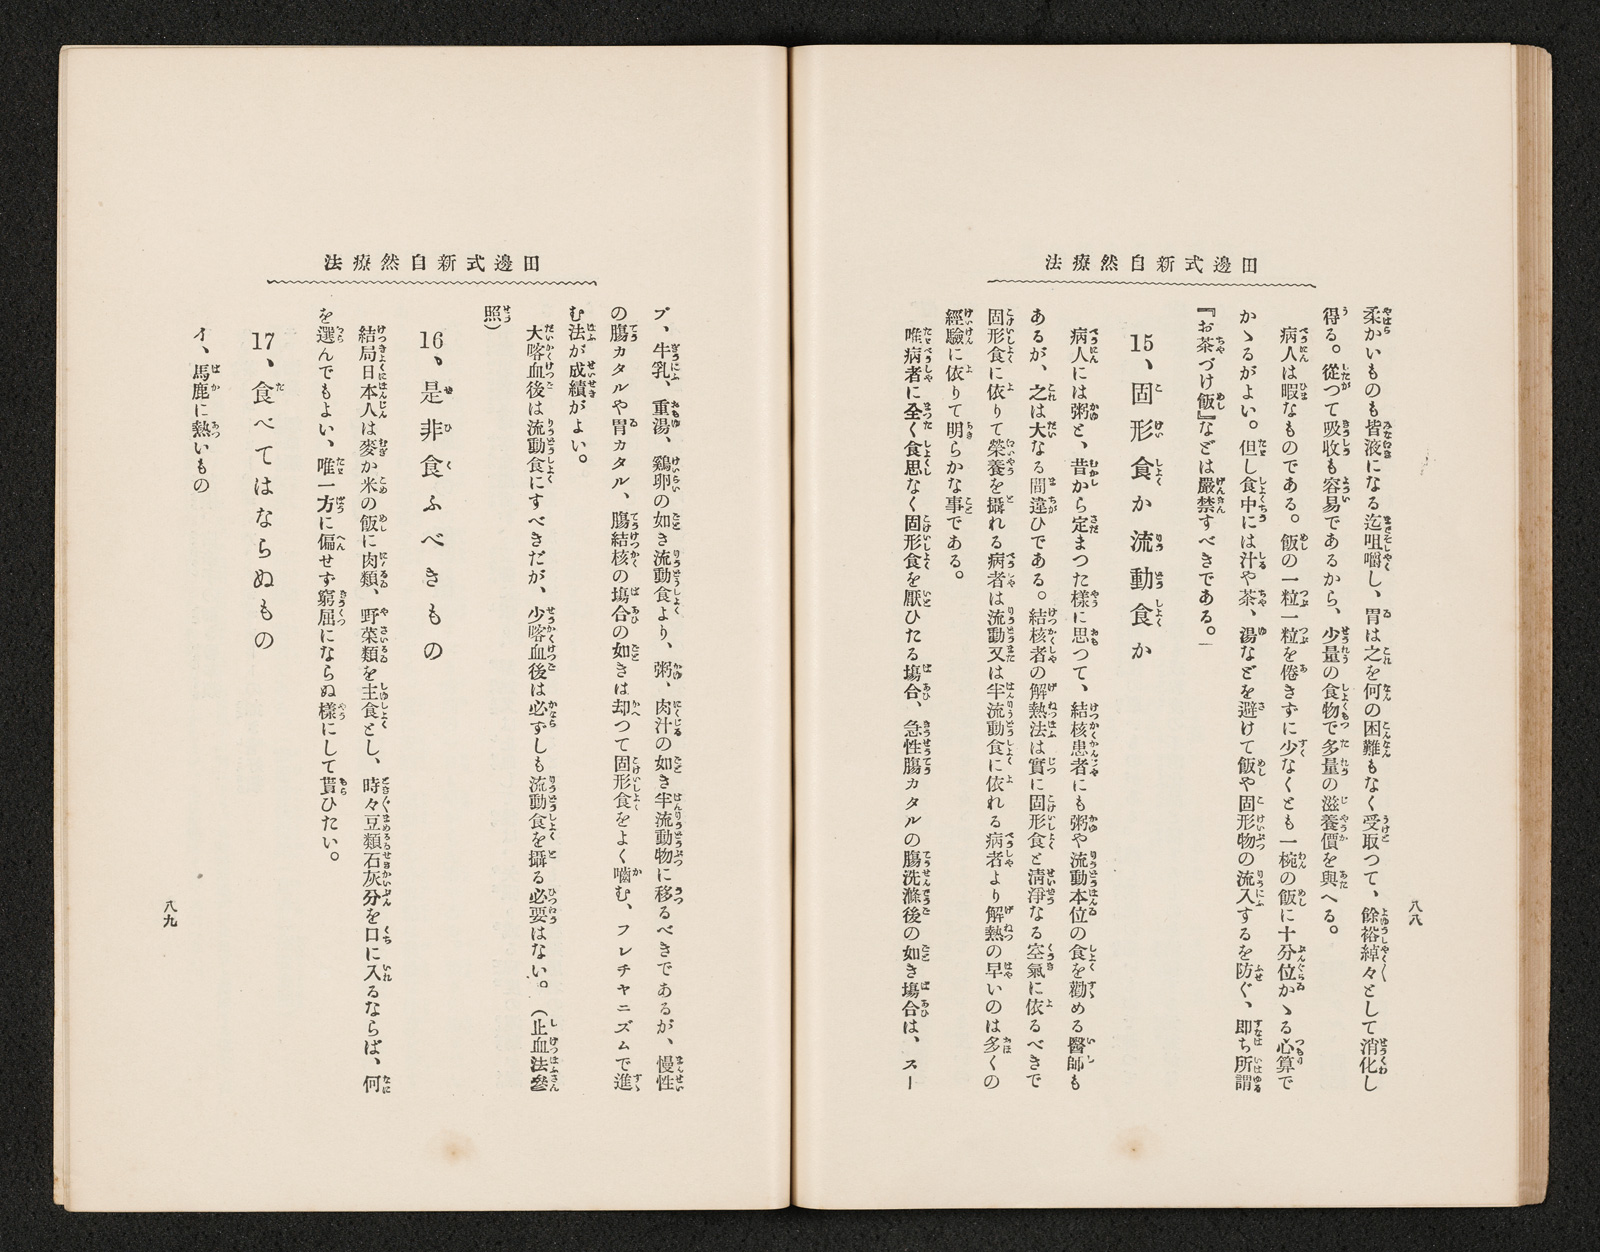 田邊式新自然療法
柔かいものも皆液になる迄咀嚼し、胃は之を何の困難もなく受取つて、餘裕綽々として消化し
得る。從つて吸收も容易であるから、少量の食物で多量の滋養價を與へる。
病人は暇なものである。飯の一粒一粒を倦きずに少なくとも一椀の飯に十分位かゝる心算で
かゝるがよい。但し食中には汁や茶、湯などを避けて飯や固形物の流入するを防ぐ、即ち所謂
『お茶づけ飯』などは嚴禁すべきである。
15、固形食か流動食か
病人には粥と、昔から定まつた樣に思つて、結核患者にも粥や流動本位の食を勸める醫師も
あるが、之は大なる間違ひである。結核者の解熱法は實に固形食と清淨なる空氣に依るべきで
固形食に依りて榮養を攝れる病者は流動又は半流動食に依れる病者より解熱の早いのは多くの
經驗に依りて明らかな事である。
唯病者に全く食思なく固形食を厭ひたる塲合、急性膓カタルの膓洗滌後の如き塲合は、スー
八八
田邊式新自然療法
プ、牛乳、重湯、鷄卵の如き流動食より、粥、肉汁の如き半流動物に移るべきであるが、慢性
の膓カタルや胃カタル、膓結核の塲合の如きは却つて固形食をよく嚙む、フレチャニズムで進
む法が成績がよい。
大喀血後は流動食にすべきだが、少喀血後は必ずしも流動食を攝る必要はない。（止血法參
照）
16、是非食ふべきもの
結局日本人は麥か米の飯に肉類、野菜類を主食とし、時々豆類石灰分を口に入るならば、何
を選んでもよい、唯一方に偏せず窮屈にならぬ樣にして貰ひたい。
17、食べてはならぬもの
イ、馬鹿に熱いもの
八九